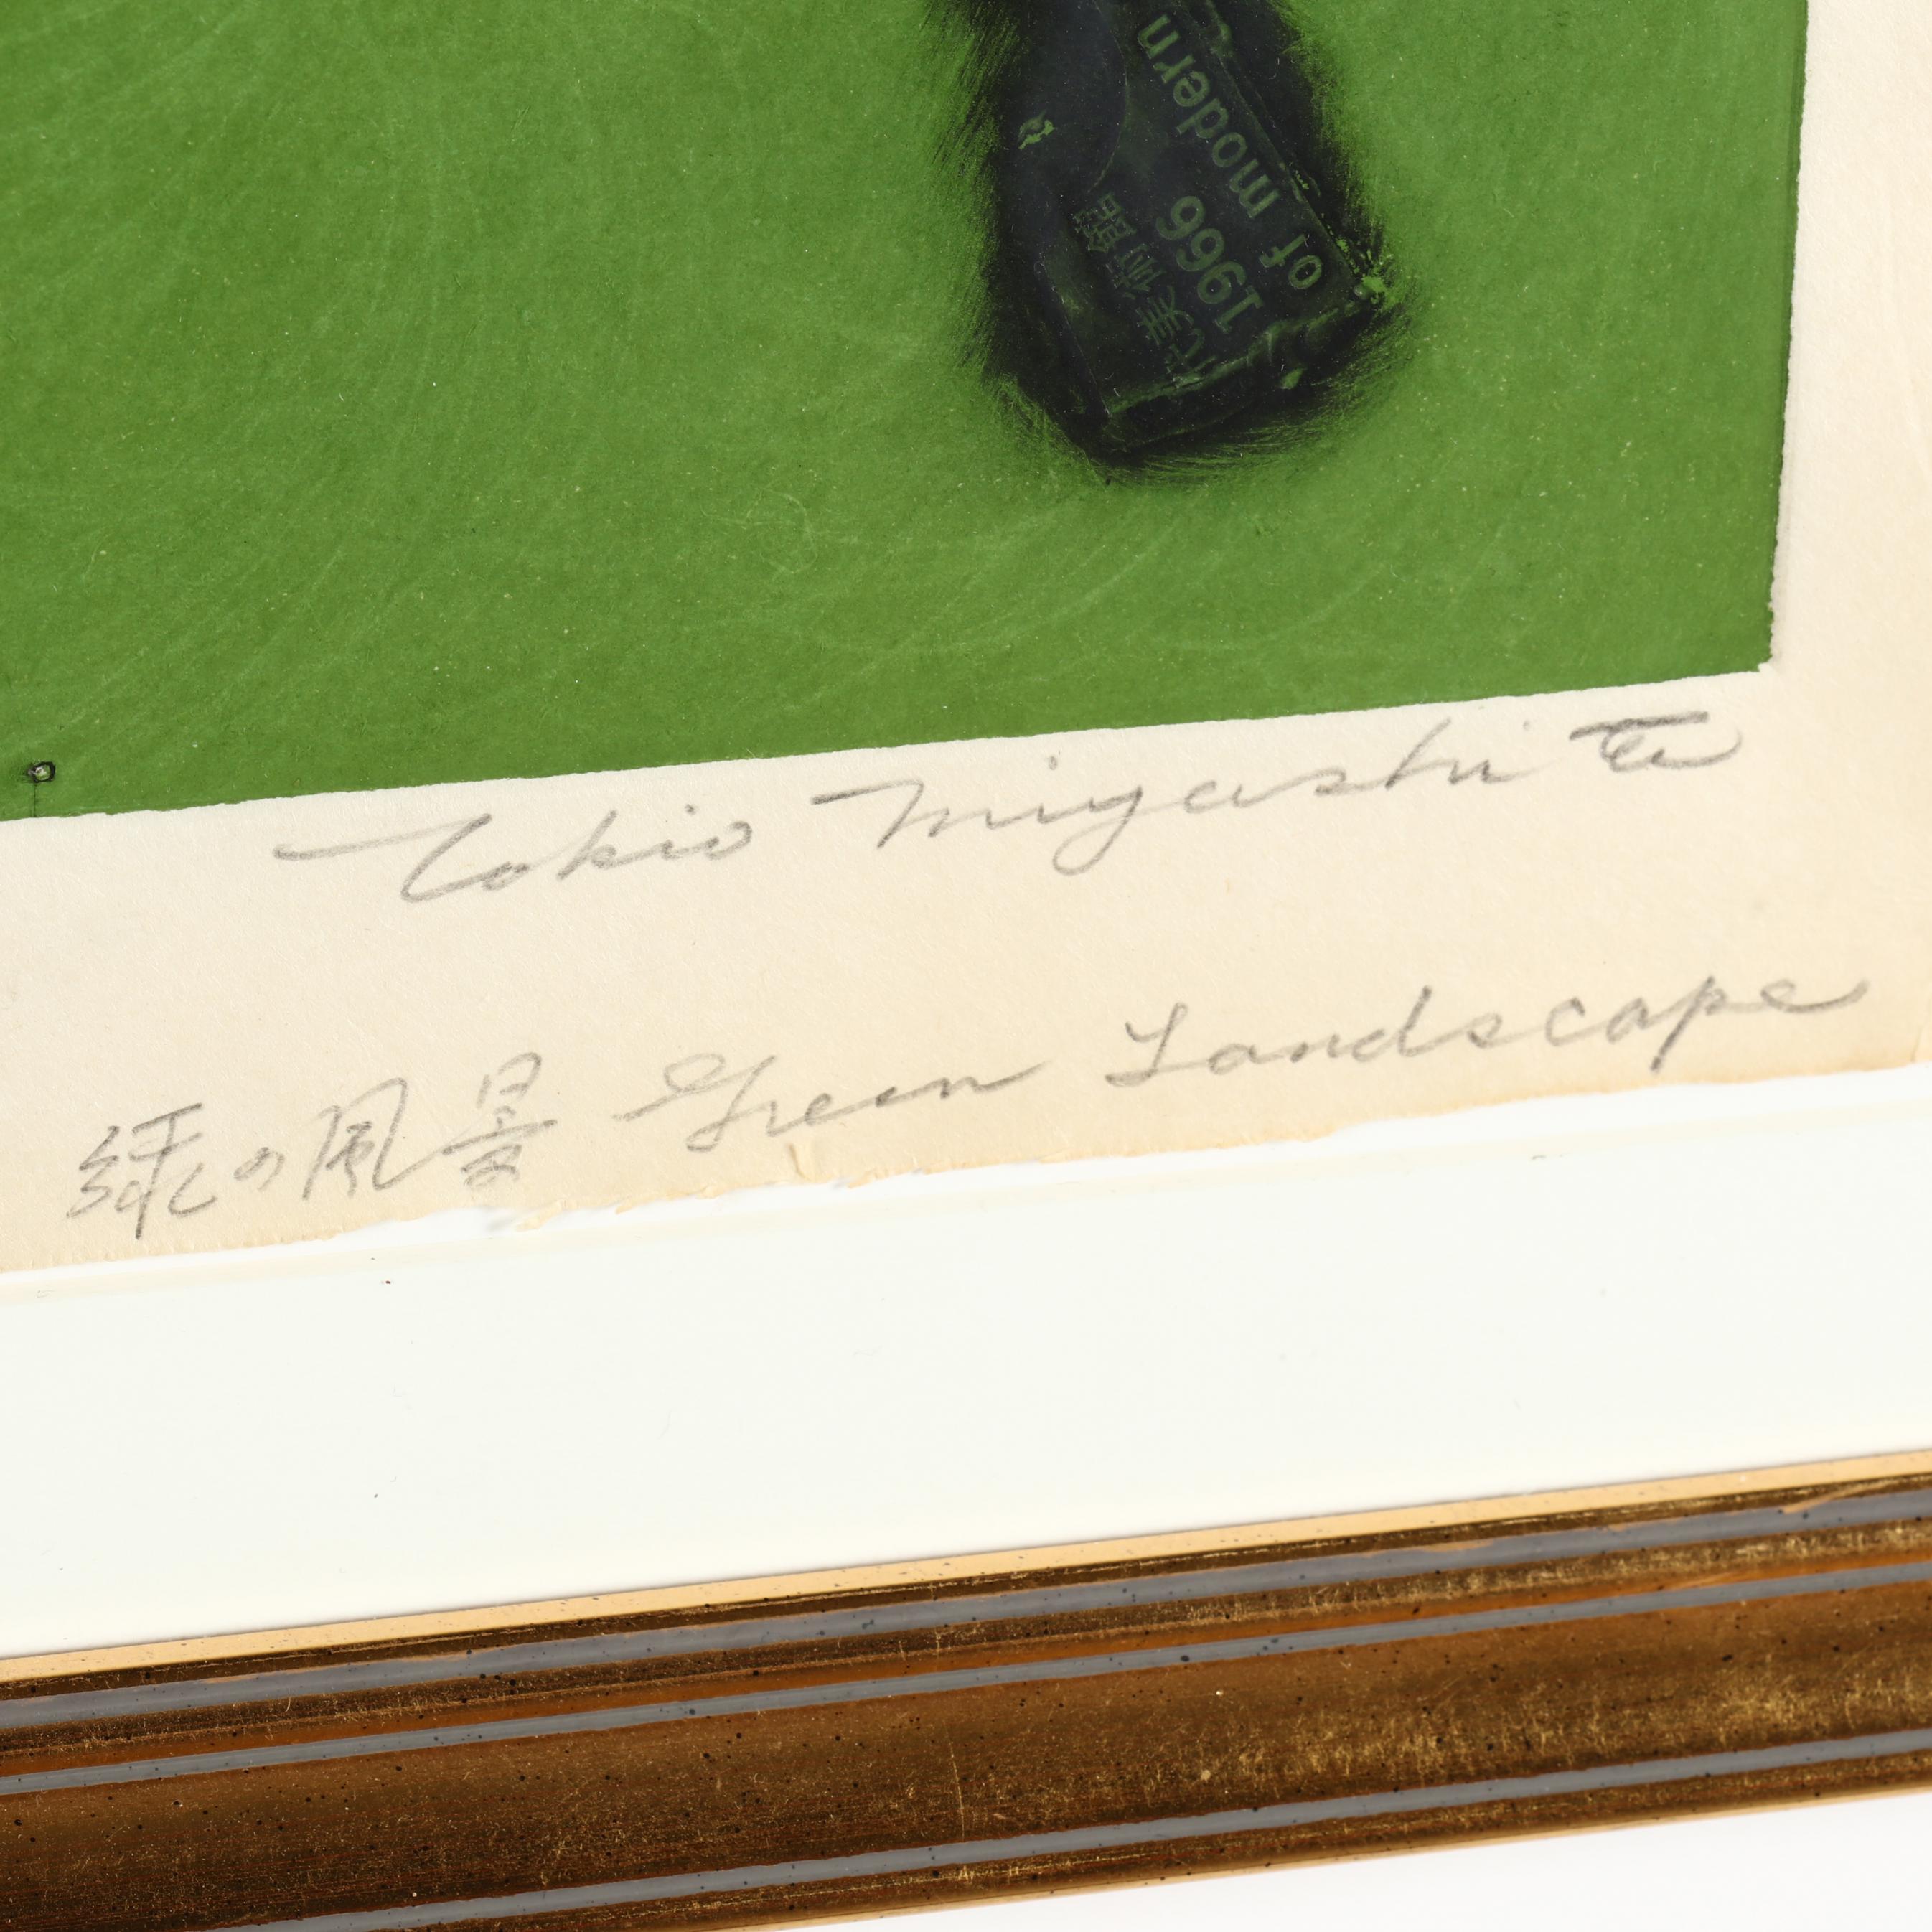 of modern
1966
代美術館
Tokio Miyashita
緑の風景 Green Landscape